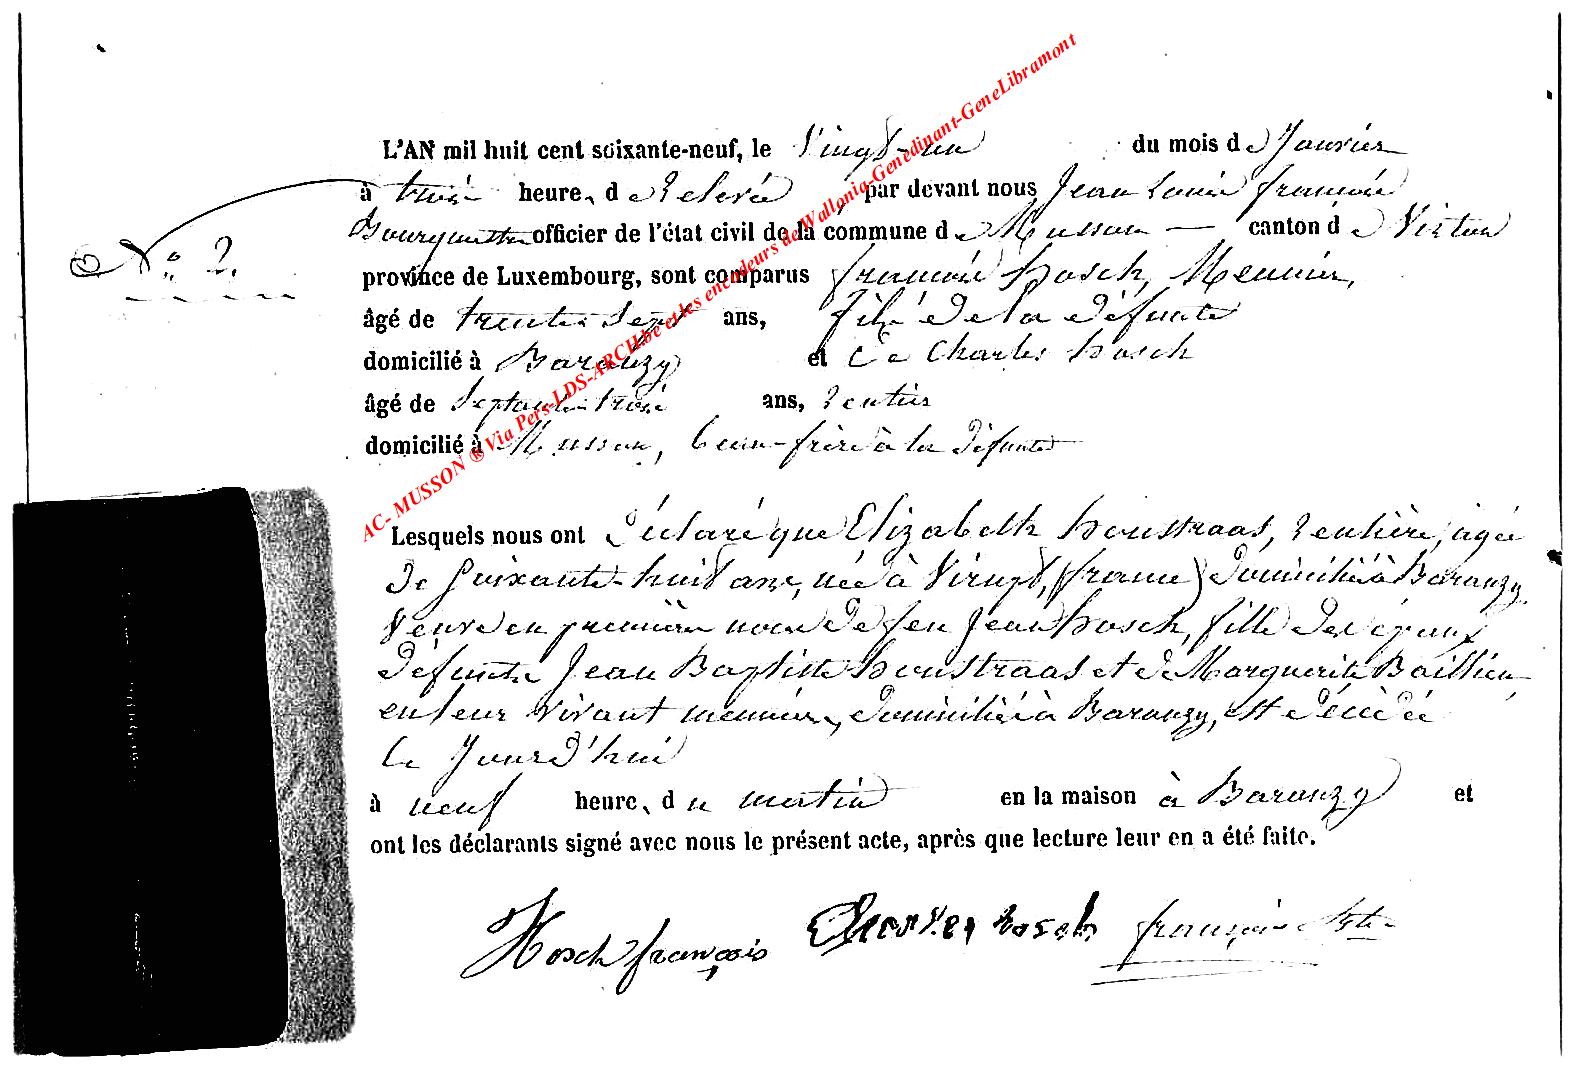 L'AN mil huit cent soixante-neuf, le Vingt-un du mois de Janvier
à trois heures, de relevée par devant nous Jean Louis françois
officier de l'état civil de la commune de Musson — canton de Virton
N° 2.
province de Luxembourg, sont comparus françois hosch, Meunier,
âgé de trente sept ans, fils de la défunte
domicilié à Baranzy et de Charles hosch
âgé de Septante trois ans, rentier
domicilié à Musson, beau-frère à la défunte
Lesquels nous ont déclaré que Elizabeth houstraas, rentière, agée
de Soixante-huit ans, née à (france) domiciliée à Baranzy
Veuve en première noce de feu Jean hosch, fille des époux
défunts Jean Baptiste houstraas et de Marguerite
en leur vivant meuniers, domiciliés à Baranzy, est décédée
Ce Jourd'hui
à neuf heures, du matin en la maison à Baranzy et
ont les déclarants signé avec nous le présent acte, après que lecture leur en a été faite.
Hosch françois Charles hosch françois
AC- MUSSON ® Via Pers-LDS-ARCH.be et les encodeurs de Wallonia-Genedinant-GeneLibramont